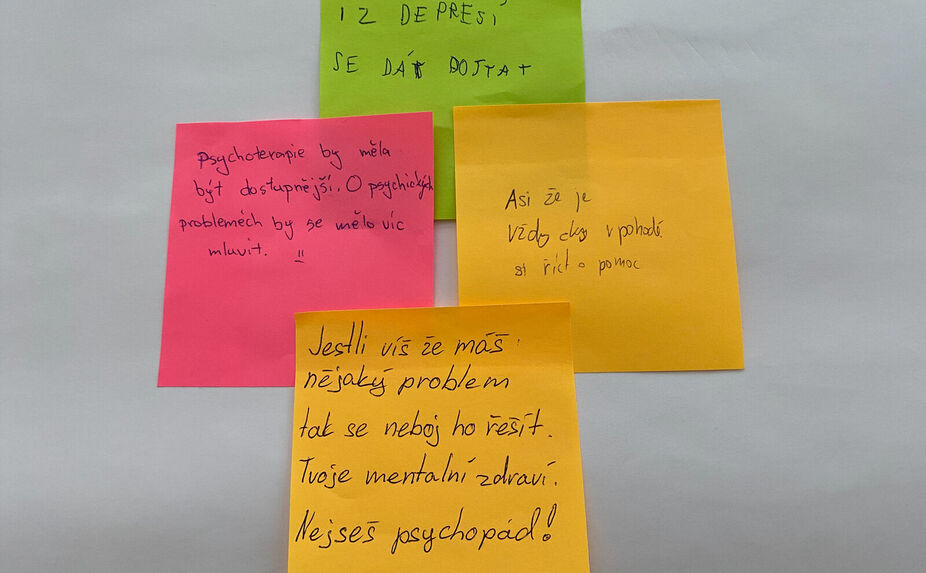 IZ DEPRESÍ
SE DÁ DOSTAT
Psychoterapie by měla
být dostupnější. O psychických
problémech by se mělo víc
mluvit.
Asi že je
vždy v pohodě
si říct o pomoc
Jestli víš že máš
nějaký problem
tak se neboj ho řešít.
Tvoje mentalní zdraví.
Nejseš psychopád!